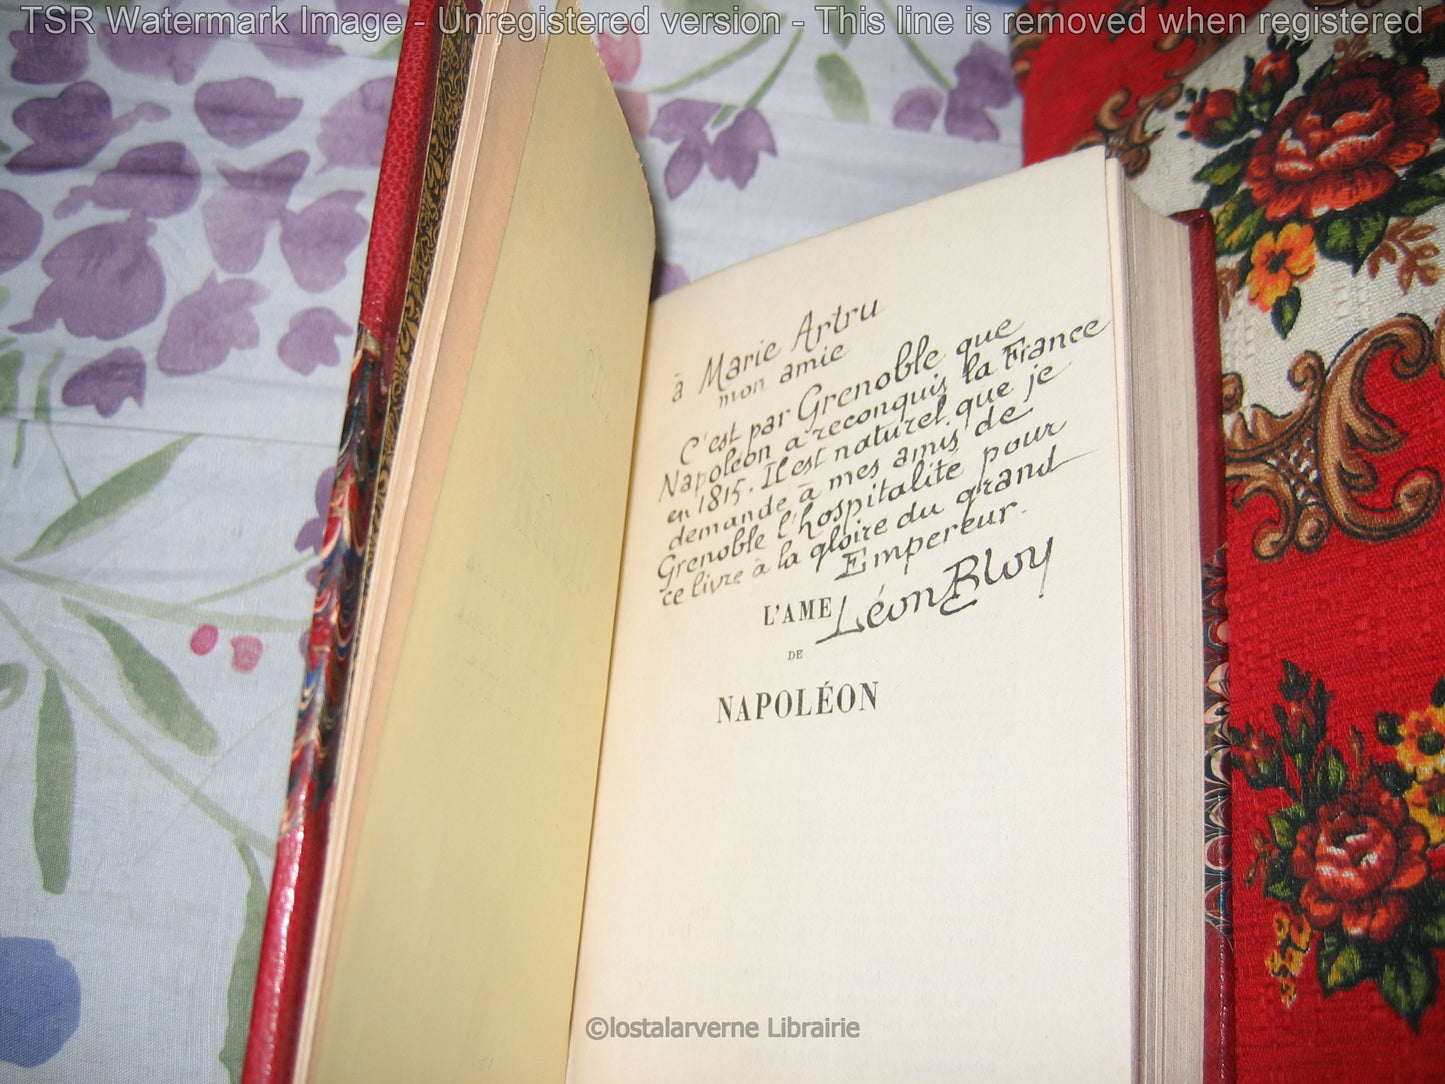 TSR Watermark Image - Unregistered version - This line is removed when registered
à Marie Artru
mon amie
C'est par Grenoble que
Napoléon a reconquis la France
en 1815. Il est naturel que je
demande à mes amis de
Grenoble l'hospitalité pour
ce livre à la gloire du grand
Empereur.
Léon Bloy
L'AME
DE
NAPOLÉON
©lostalarverne Librairie